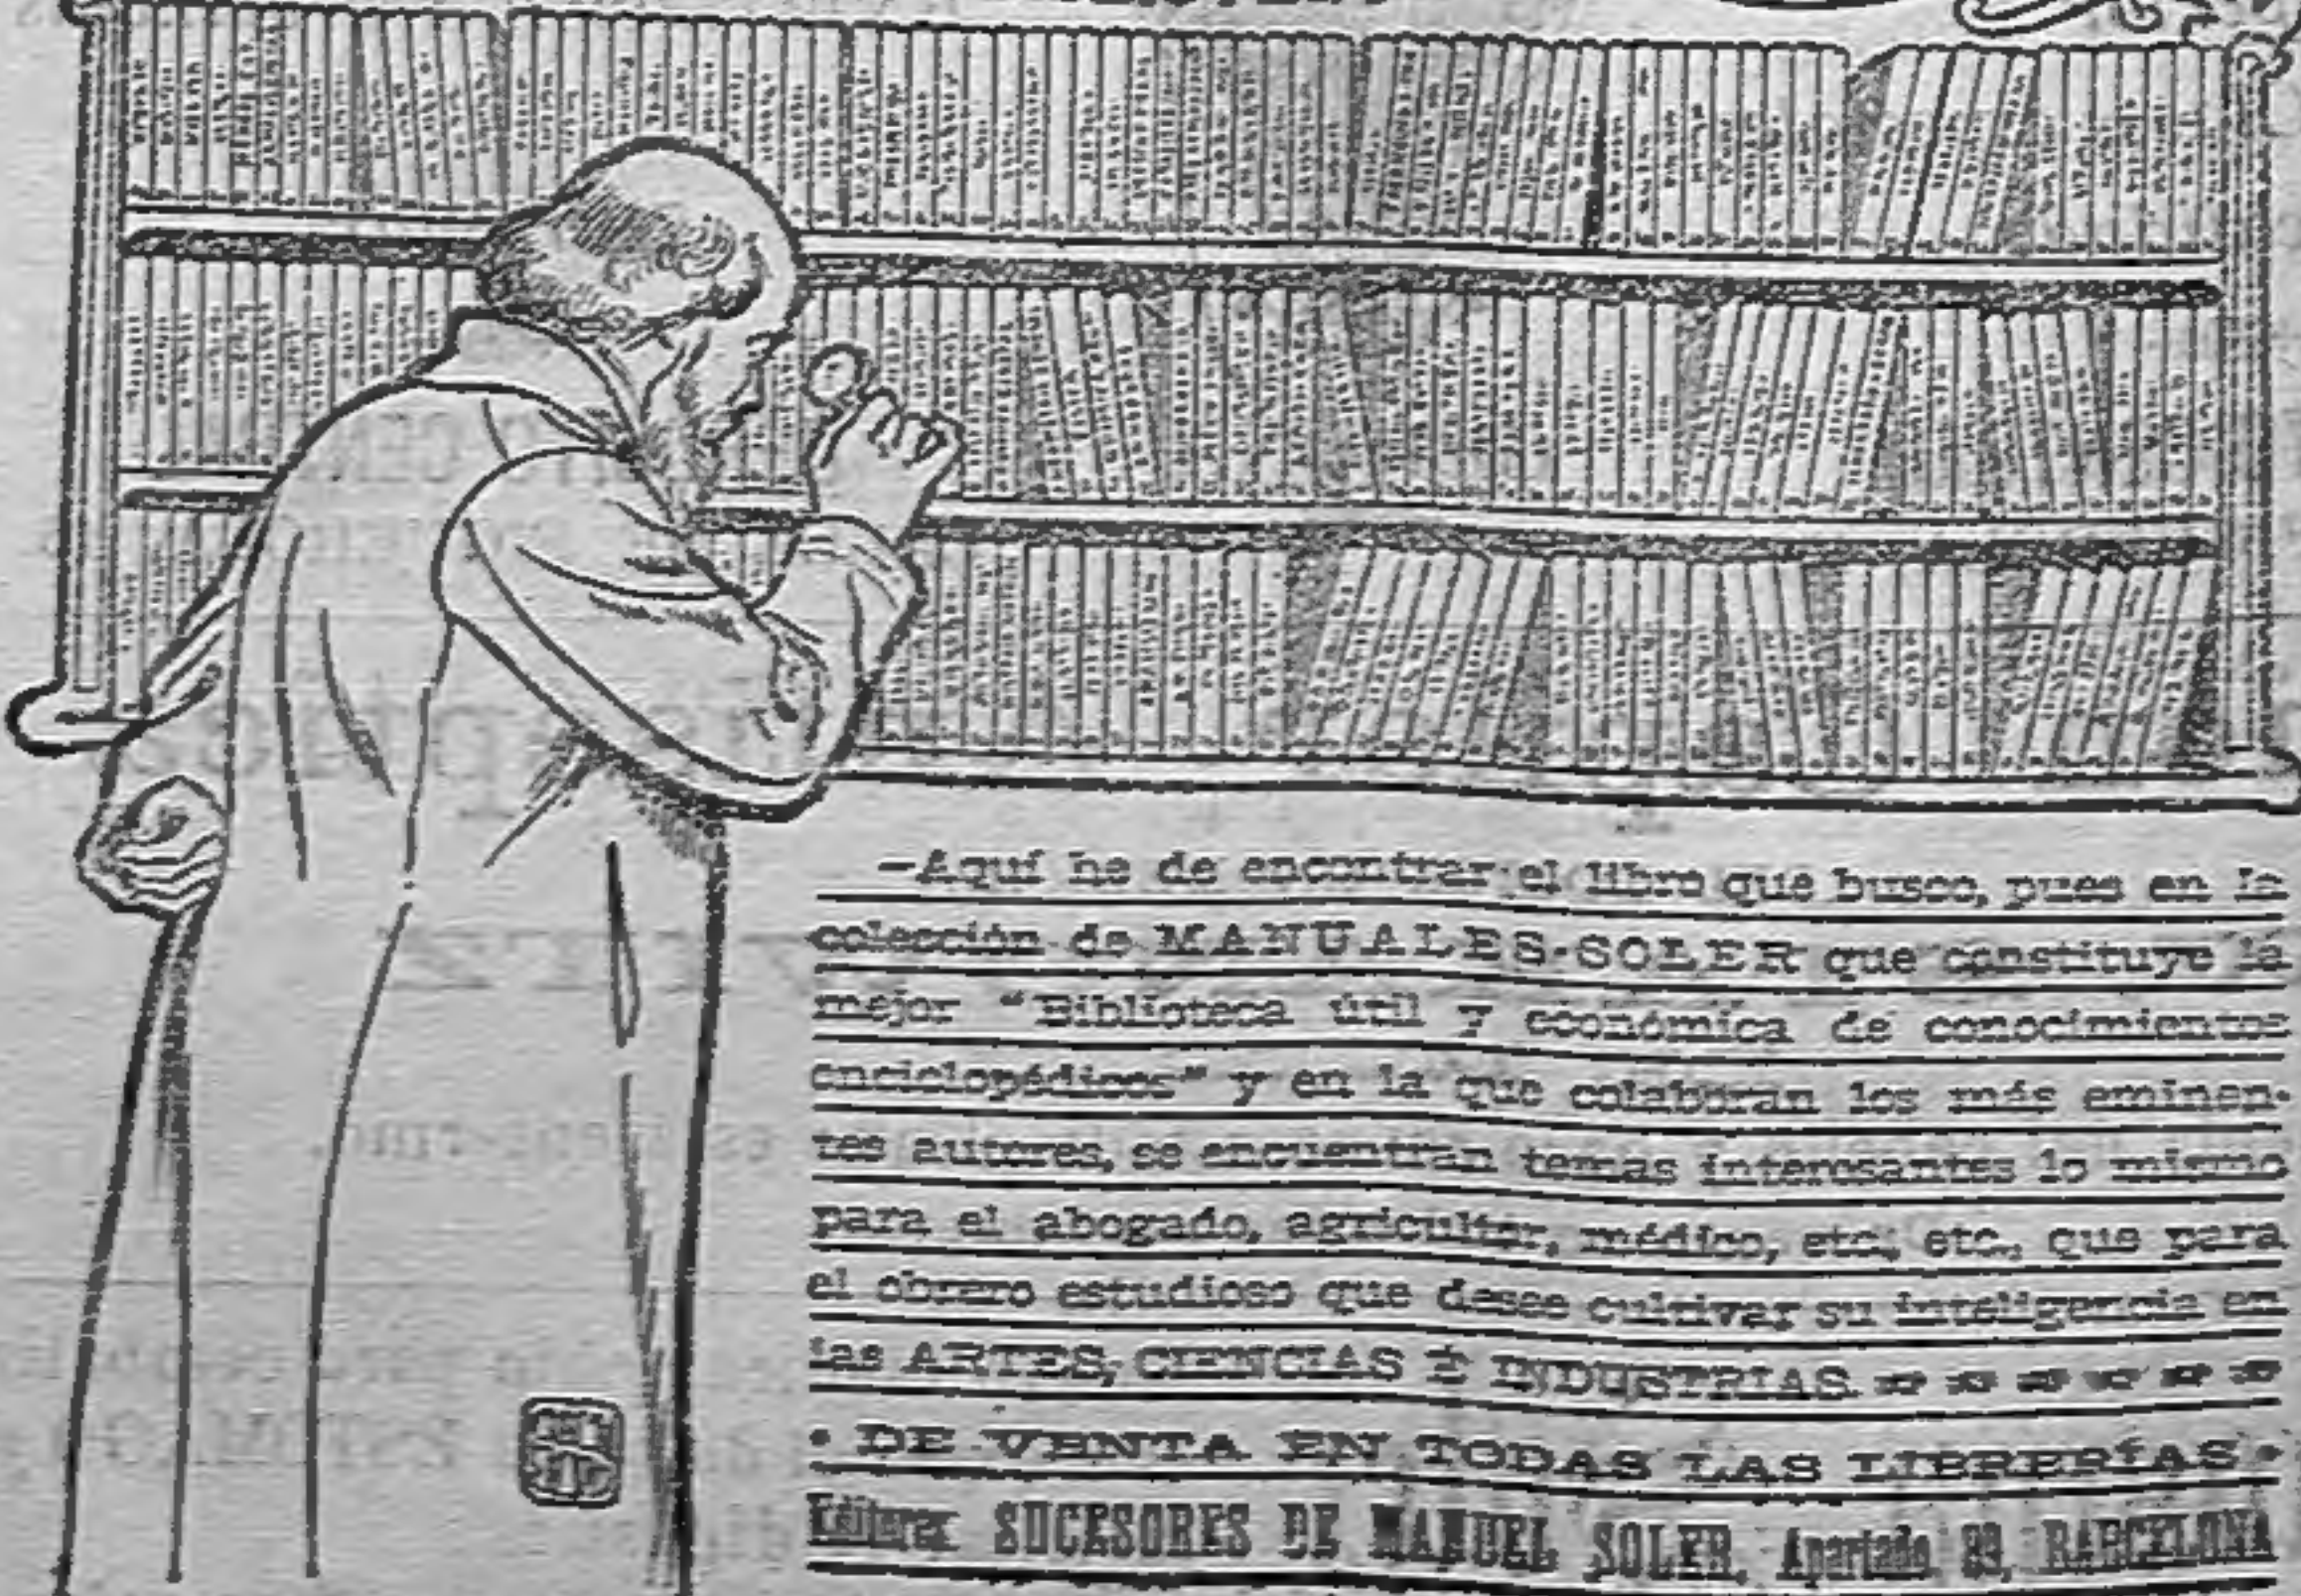 —Aquí he de encontrar el libro que busco, pues en la
colección de MANUALES-SOLER que constituye la
mejor "Biblioteca útil y económica de conocimientos
enciclopédicos" y en la que colaboran los más eminen-
tes autores, se encuentran temas interesantes lo mismo
para el abogado, agricultor, médico, etc., etc., que para
el obrero estudioso que desee cultivar su inteligencia en
las ARTES, CIENCIAS É INDUSTRIAS.
• DE VENTA EN TODAS LAS LIBRERÍAS •
Editores: SUCESORES DE MANUEL SOLER, Apartado 89, BARCELONA